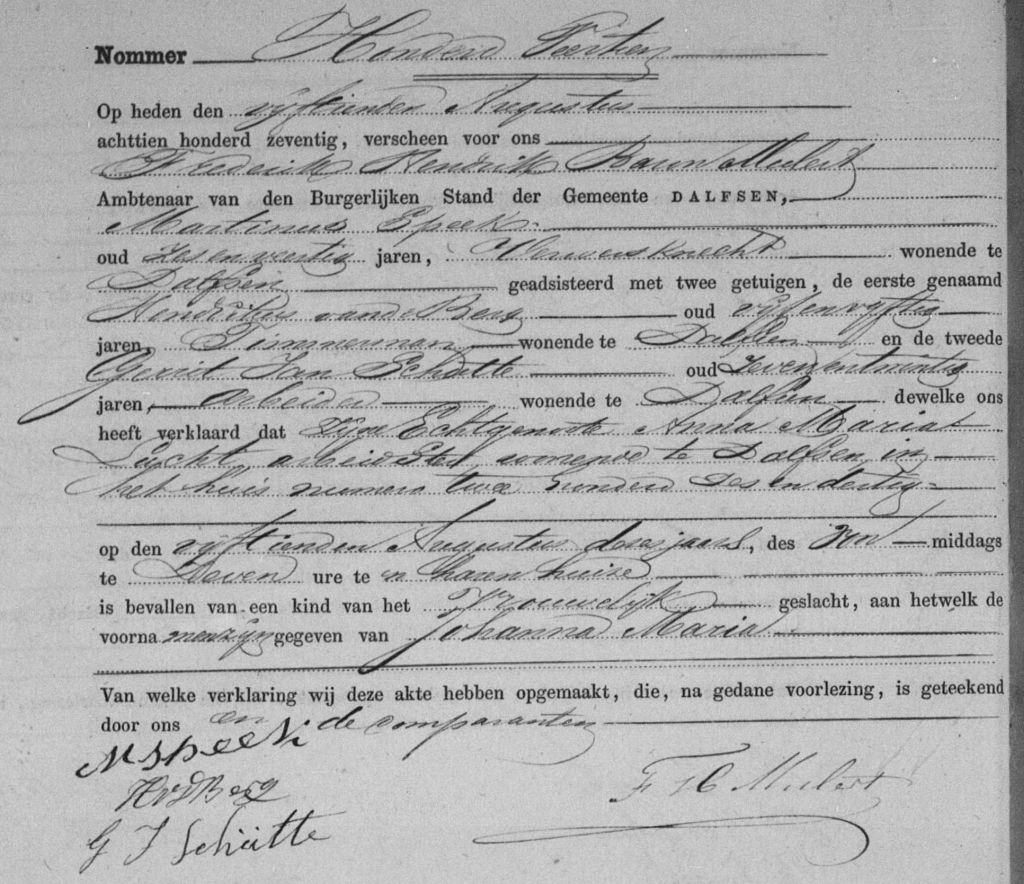 Nommer Honderd Veertien
Op heden den vijftienden Augustus
achttien honderd zeventig, verscheen voor ons
Frederik Hendrik Baron Mulert
Ambtenaar van den Burgerlijken Stand der Gemeente DALFSEN,
Martinus Speek
oud zes en veertig jaren, wonende te
Dalfsen geadsisteerd met twee getuigen, de eerste genaamd
Hendrikus van de Berg oud vijf en vijftig
jaren, Timmerman wonende te Dalfsen en de tweede
Gerrit Jan Schutte oud zeven en twintig
jaren, Arbeider wonende te Dalfsen dewelke ons
heeft verklaard dat zijne Echtgenoote Anna Maria
arbeidster, wonende te Dalfsen in
het huis numero twee honderd zes en dertig
op den vijftienden Augustus dezes jaars, des middags
te zeven ure te haren huize
is bevallen van een kind van het Vrouwelijk geslacht, aan hetwelk de
voornamen zijn gegeven van Johanna Maria
Van welke verklaring wij deze akte hebben opgemaakt, die, na gedane voorlezing, is geteekend
door ons en de comparanten
M Speek
HvdBerg F H Mulert
G J Schütte